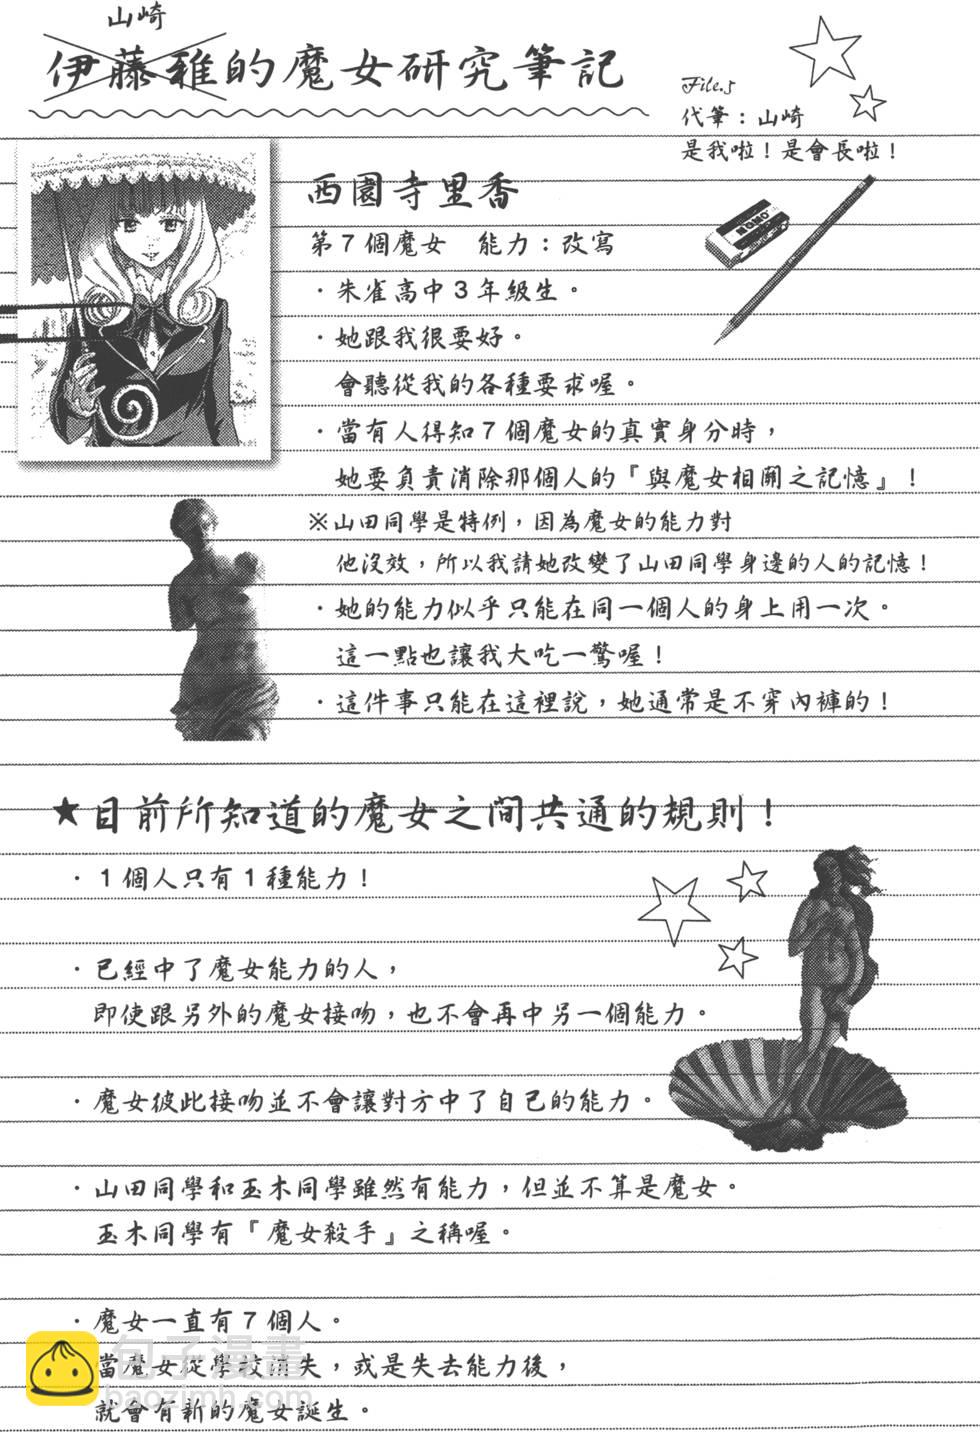 山崎
伊藤雅的魔女研究筆記
File.5
代筆：山崎
是我啦！是會長啦！
西園寺里香
MONO
第7個魔女　能力：改寫
・朱雀高中3年級生。
・她跟我很要好。
會聽從我的各種要求喔。
・當有人得知7個魔女的真實身分時，
她要負責消除那個人的『與魔女相關之記憶』！
※山田同學是特例，因為魔女的能力對
他沒效，所以我請她改變了山田同學身邊的人的記憶！
・她的能力似乎只能在同一個人的身上用一次。
這一點也讓我大吃一驚喔！
・這件事只能在這裡說，她通常是不穿內褲的！
★目前所知道的魔女之間共通的規則！
・1個人只有1種能力！
・已經中了魔女能力的人，
即使跟另外的魔女接吻，也不會再中另一個能力。
・魔女彼此接吻並不會讓對方中了自己的能力。
・山田同學和玉木同學雖然有能力，但並不算是魔女。
玉木同學有『魔女殺手』之稱喔。
・魔女一直有7個人。
包子漫畫
當魔女從學校消失，或是失去能力後，
baozimh.com
就會有新的魔女誕生。